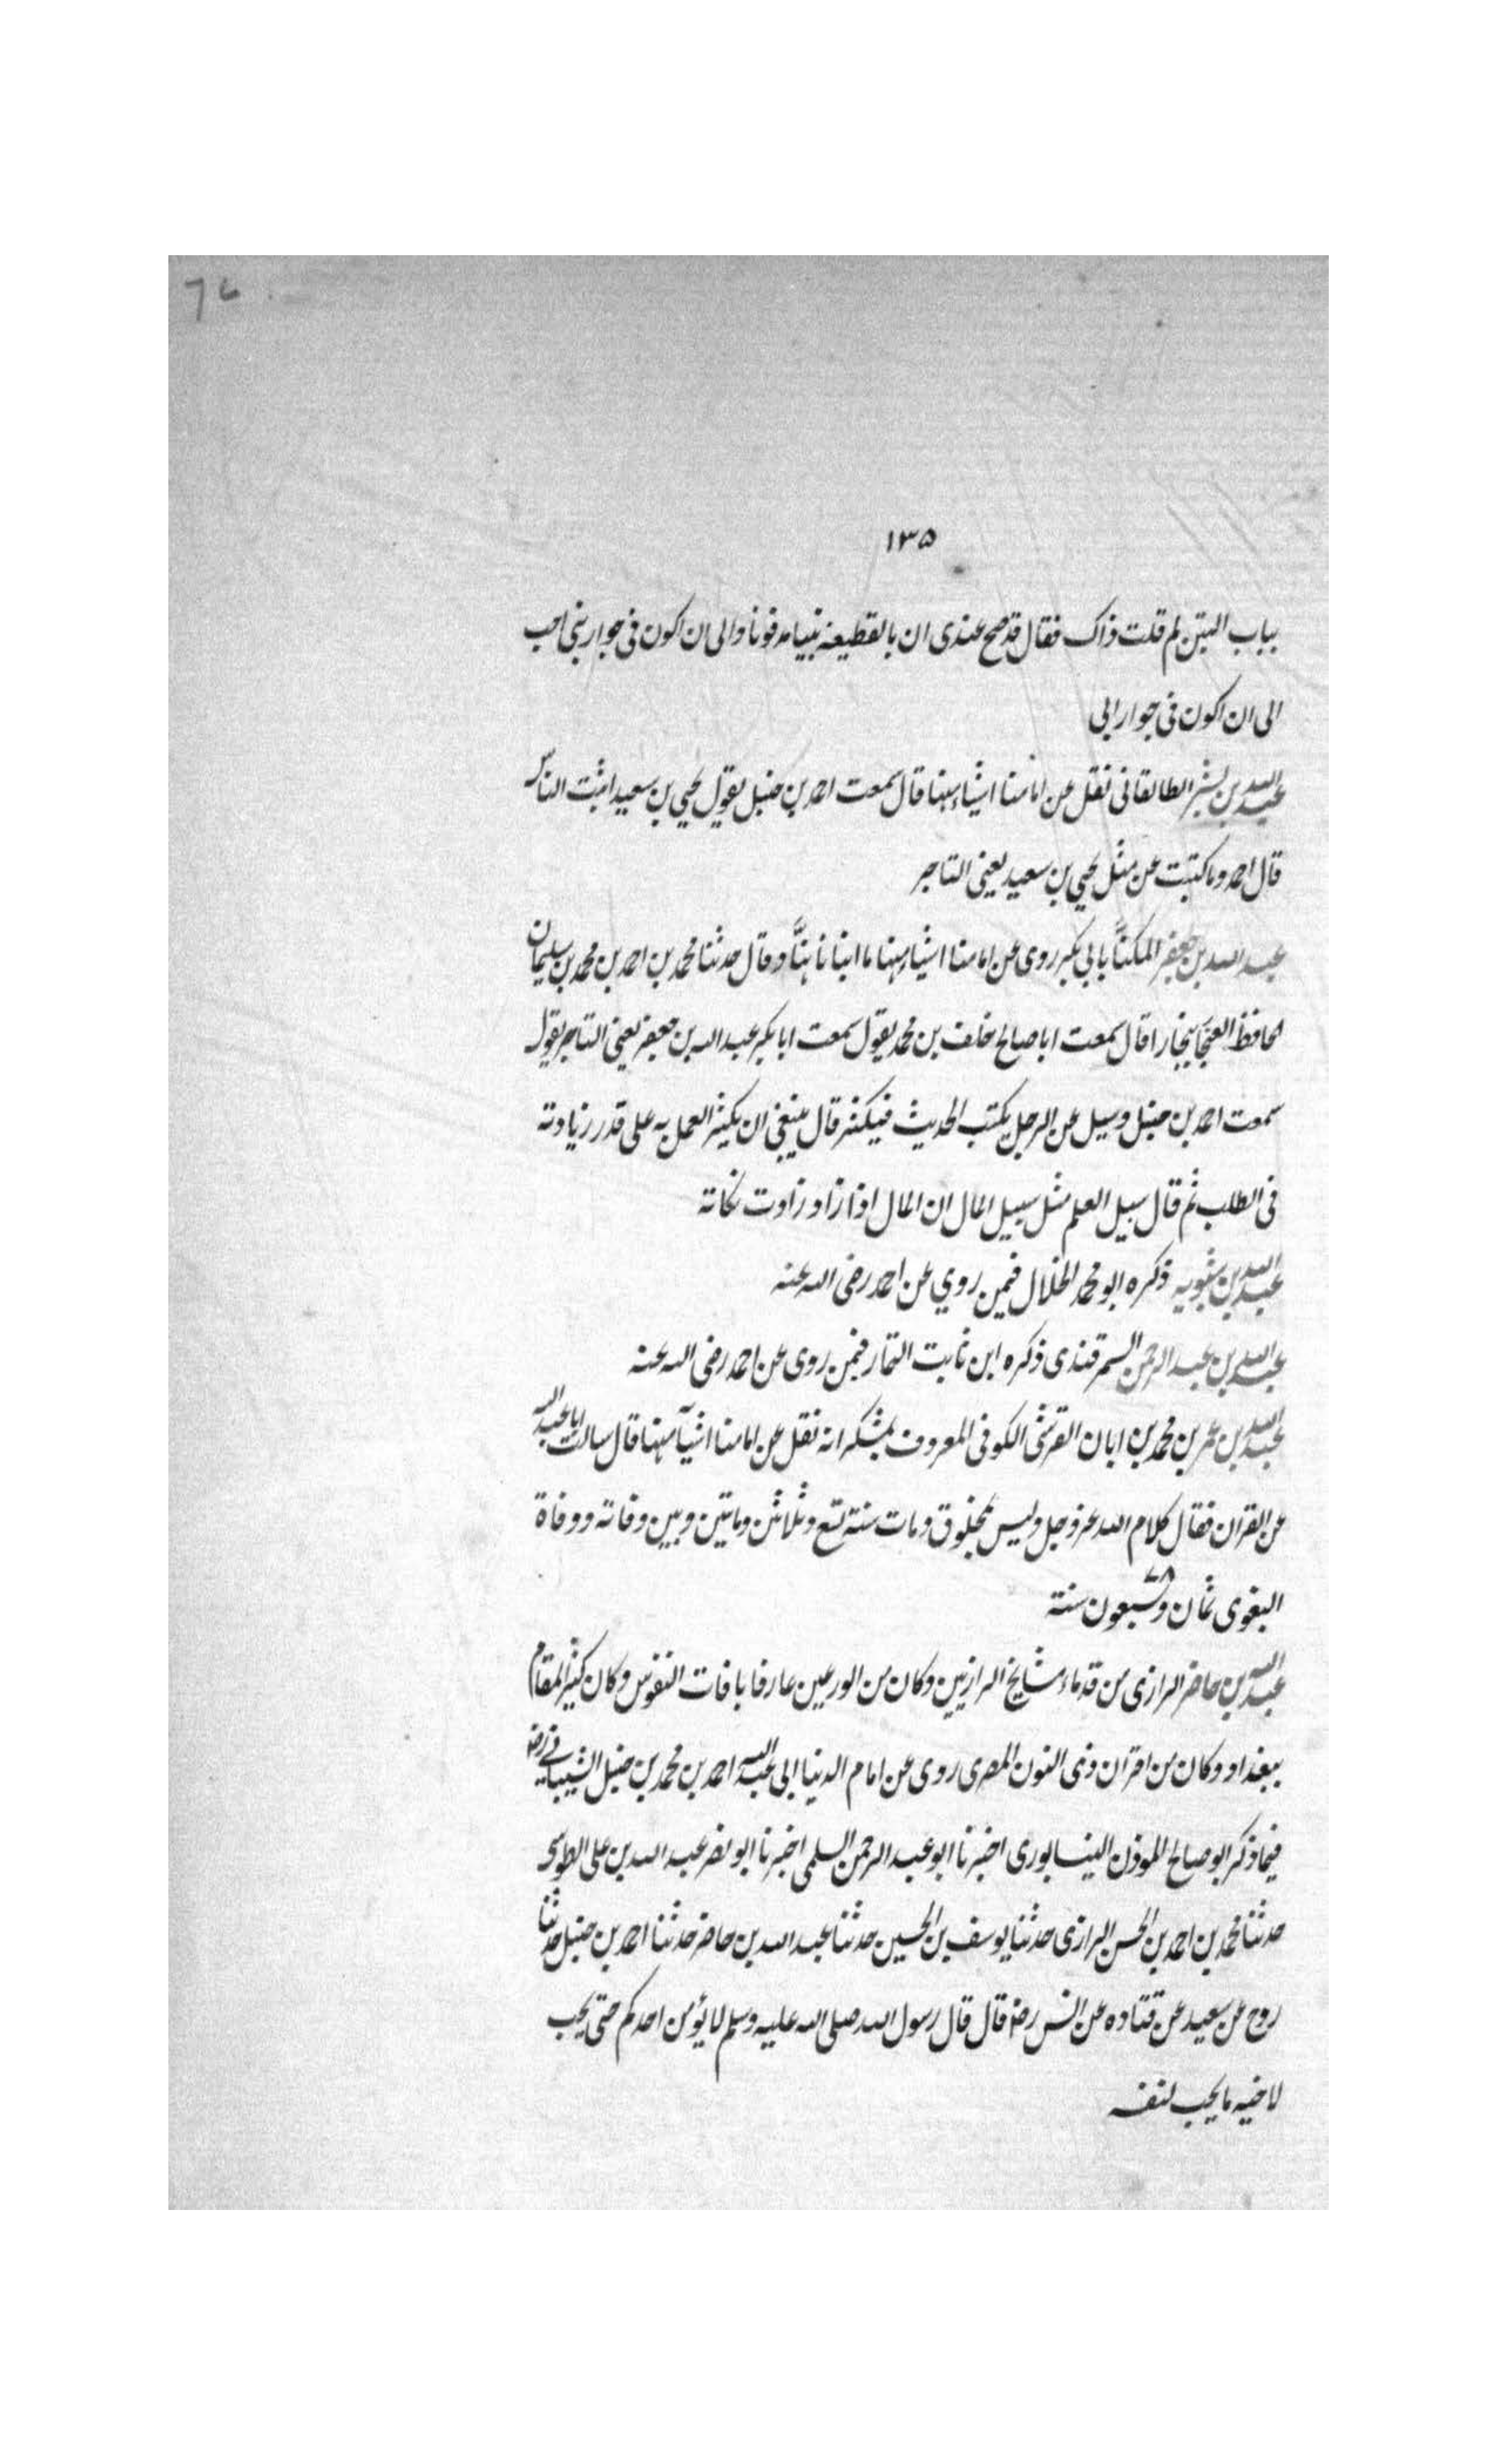 ٦٧
١٣٥
بباب التبن لم قلت ذاك فقال قد صح عندى ان بالقطيعة نبيا مدفونا والى ان اكون فى جوار نبى احب
الى ان اكون فى جوار ابى
عبد الله بن بشر الطالقانى نقل عن امامنا اشياء منها قال سمعت احمد بن حنبل يقول يحيى بن سعيد اثبت الناس
قال احمد وما كتبت عن مثل يحيى بن سعيد يعنى التاجر
عبد الله بن جعفر المكنا بابي بكر روى عن امامنا اشياء منها ما انبانا هنّاد قال حدثنا محمد بن احمد بن محمد بن سليمان
لحافظ الغنجار ببخارا قال سمعت ابا صالح خلف بن محمد يقول سمعت ابا بكر عبد الله بن جعفر يعنى التاجر يقول
سمعت احمد بن حنبل وسيل عن الرجل يكتب الحديث فيكثر قال ينبغى ان يكثر العمل به على قدر زيادته
فى الطلب ثم قال سبيل العلم مثل سبيل المال ان المال اذا زاد زادت زكاته
عبد الله بن شبويه ذكره ابو محمد الخلال فيمن روي عن احمد رضى الله عنه
عبد الله بن عبد الرحمن السمرقندى ذكره ابن ثابت التمار فيمن روى عن احمد رضى الله عنه
عبد الله بن عمر بن محمد بن ابان القرشى الكوفى المعروف بمشكدانه نقل عن امامنا اشيآ منها قال سالت ابا عبد الله
عن القران فقال كلام الله عز وجل وليس بمخلوق ومات سنة تسع وثلاثن وماتين وبين وفاته ووفاة
البغوى ثمان وسبعون سنة
عبد الله بن حاضر الرازى من قدماء مشايخ الرازيين وكان من الورعين عارفا بافات النفوس وكان كثير المقام
ببغداد وكان من اقران ذى النون المصرى روى عن امام الدنيا ابى عبد الله احمد بن محمد بن حنبل الشيبانى رضہ
فيما ذكر ابو صالح الموذن النيسابورى اخبرنا ابو عبد الرحمن السلمى اخبرنا ابو نصر عبد الله بن على الطوسى
حدثنا محمد بن احمد بن الحسن الرازى حدثنا يوسف بن الحسين حدثنا عبد الله بن حاضر حدثنا احمد بن حنبل حدثنا
روح عن سعيد عن قتاده عن انس رضہ قال قال رسول الله صلى الله عليه وسلم لا يؤمن احدكم حتى يحب
لاخيه ما يحب لنفسه